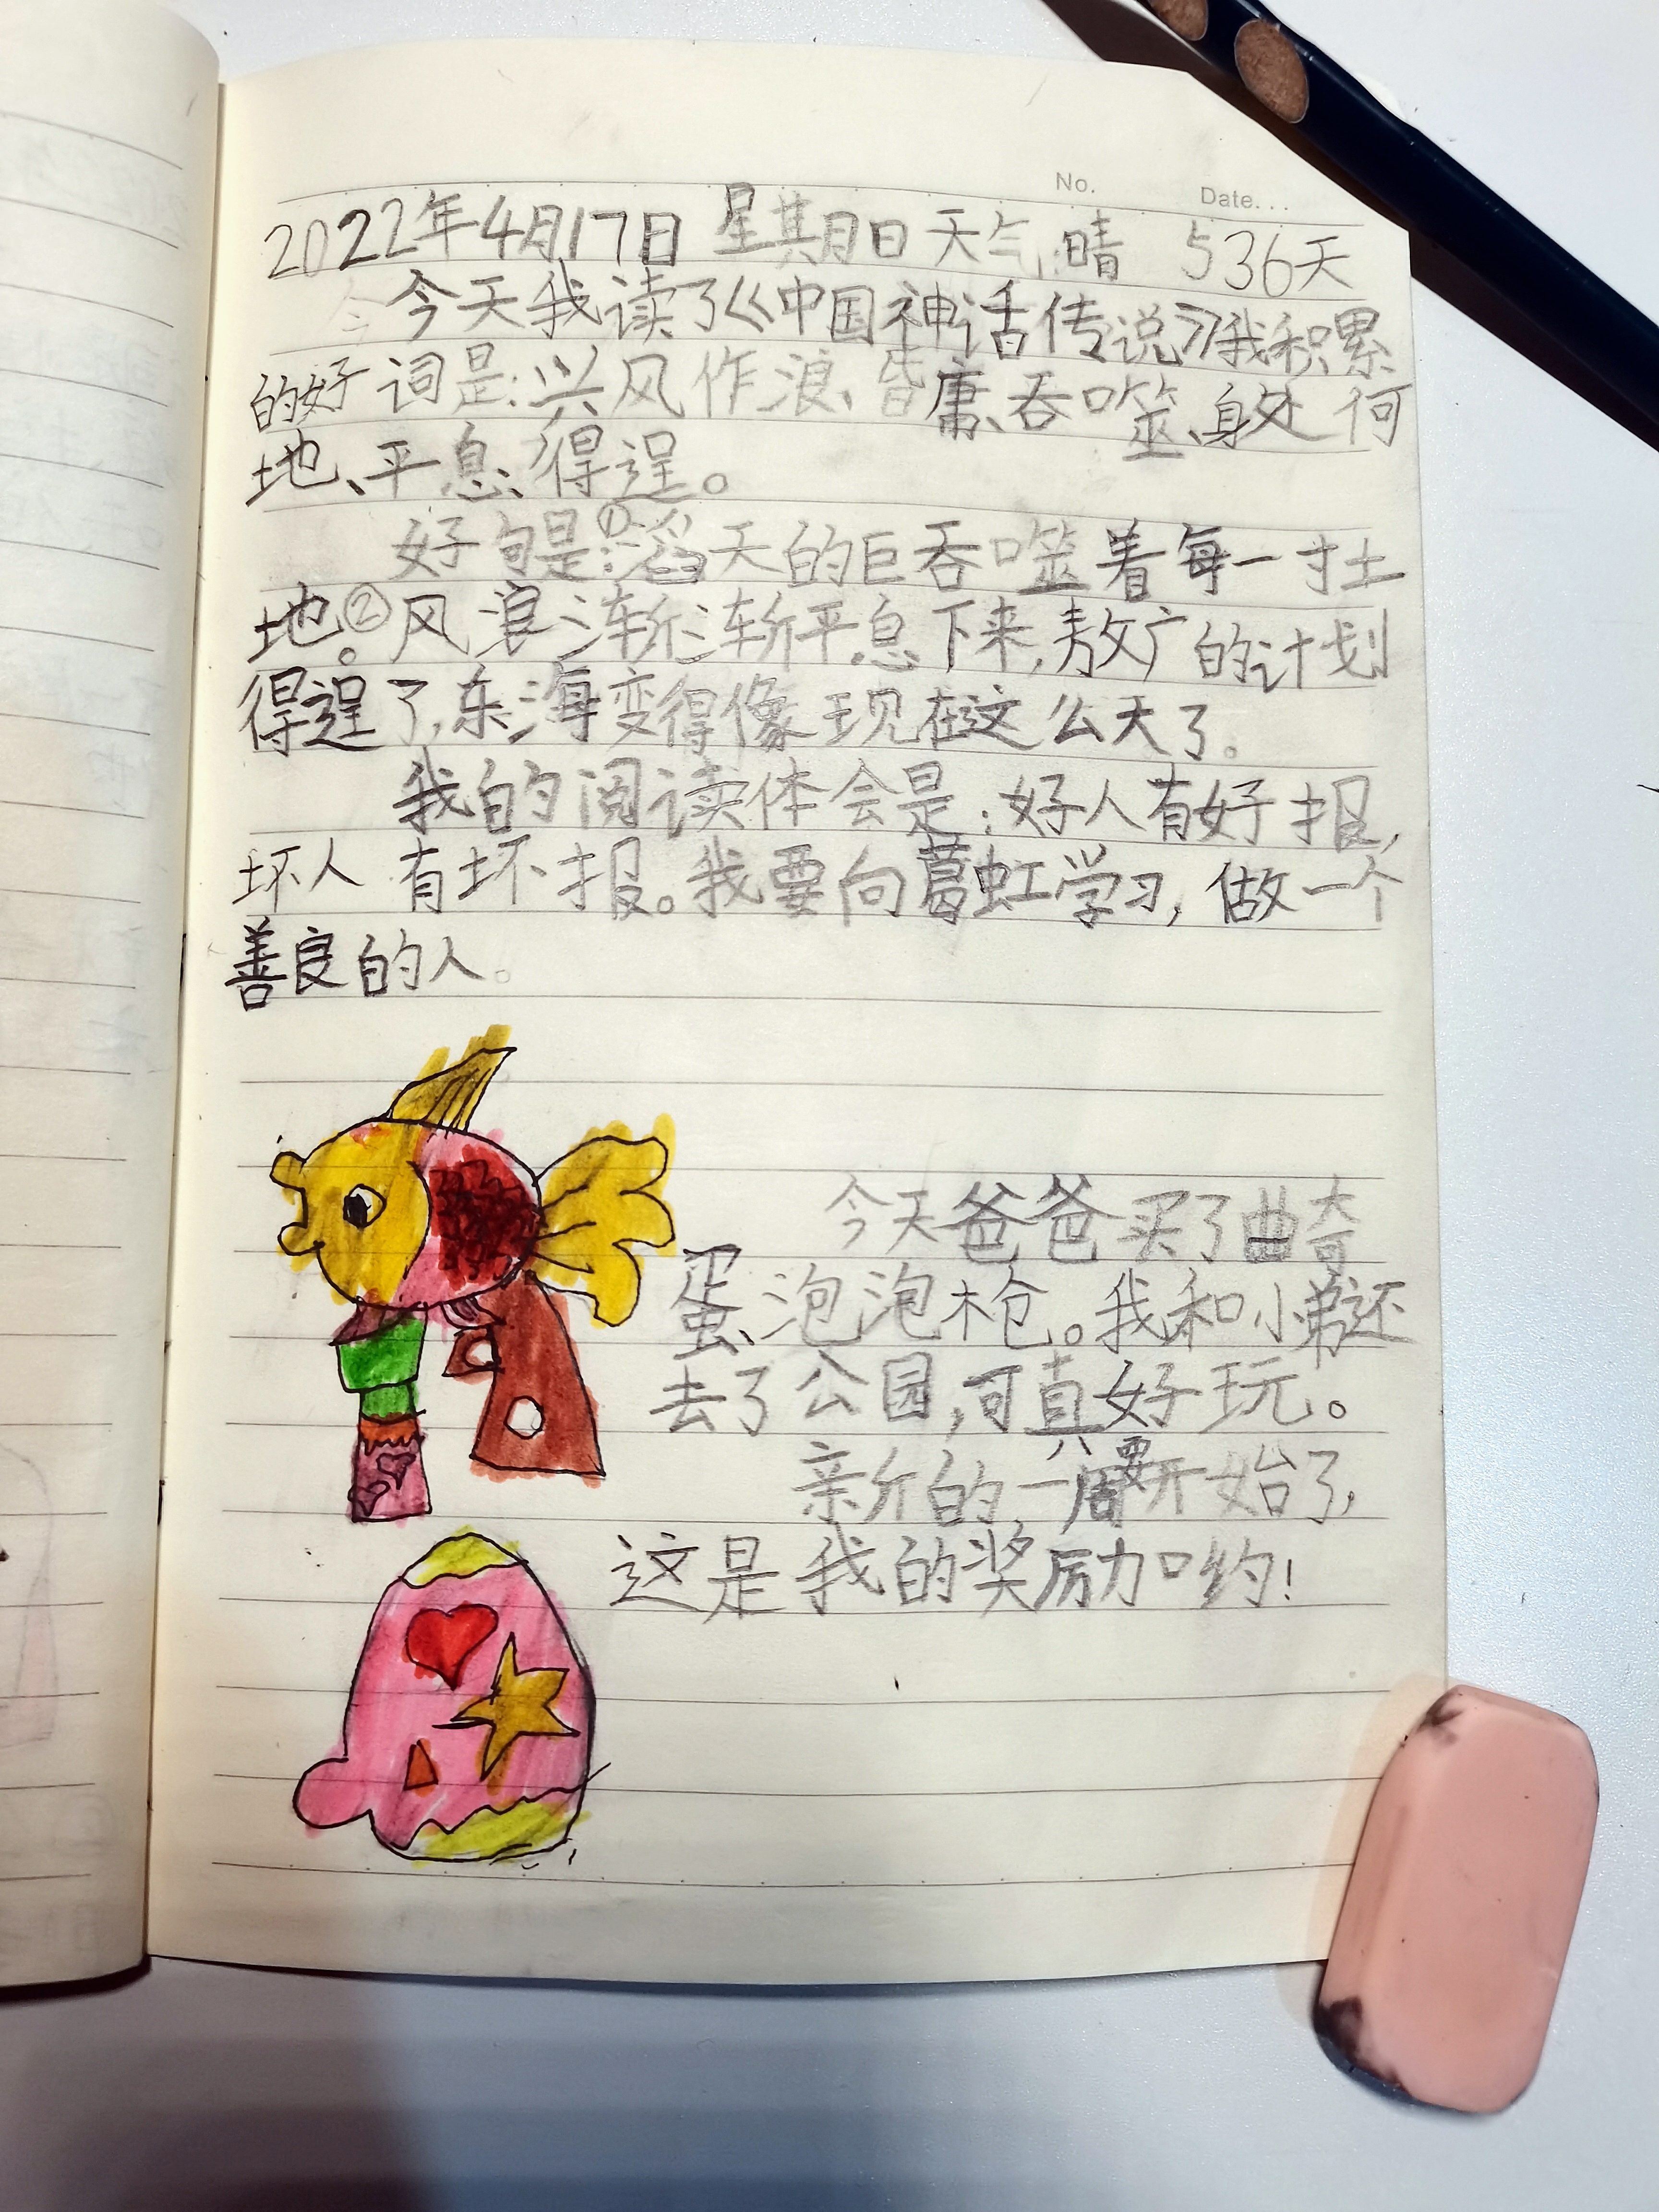 No.
Date...
2022年4月17日 星期日 天气:晴 536天
今天我读了《中国神话传说》我积累
的好词是:兴风作浪、皆庸、吞噬、身处何
地、平息、得逞。
好句是:①滔天的巨吞噬着每一寸土
地。②风浪渐渐平息下来,敖广的计划
得逞了,东海变得像现在这么大了。
我的阅读体会是:好人有好报,
坏人有坏报。我要向葛虹学习,做一个
善良的人。
今天爸爸买了曲奇
蛋、泡泡枪。我和小弟还
去了公园,可真好玩。
新的一周要开始了,
这是我的奖励口约!